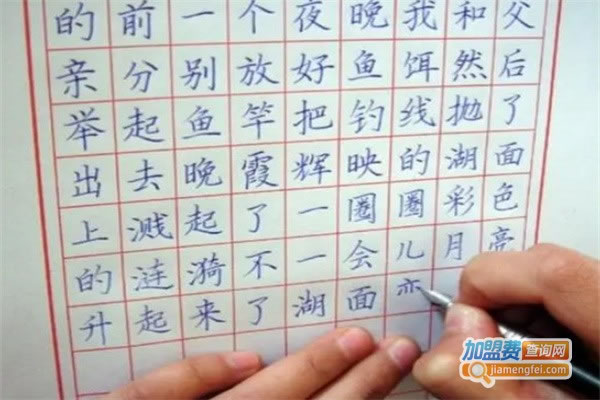 的前一个夜晚我和父
亲分别放好鱼饵然后
举起鱼竿把钓线抛了
出去晚霞辉映的湖面
上溅起了一圈圈彩色
的涟漪不一会儿月亮
升起来了湖面
加盟费查询网
jiamengfei.com